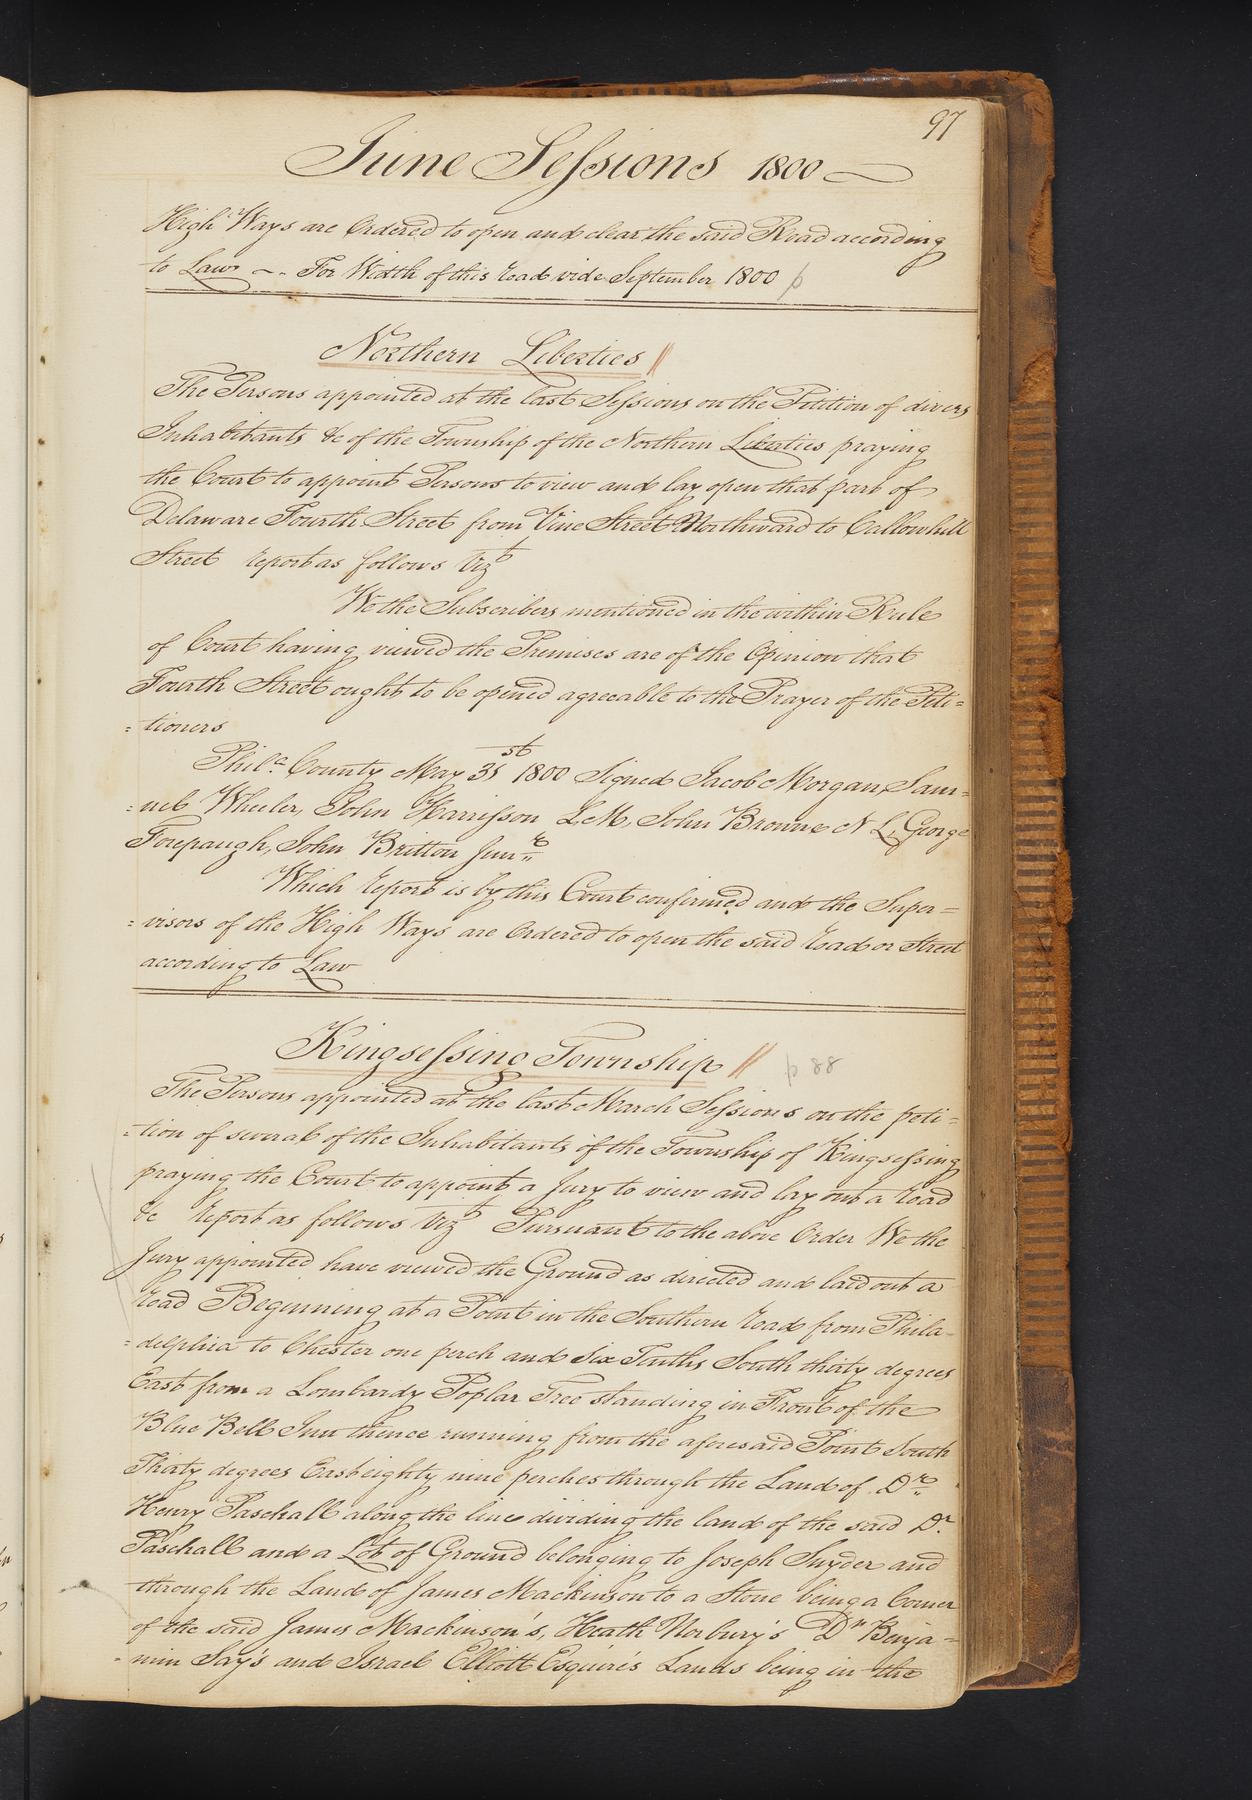 97
June Sessions 1800
High Ways are Ordered to open and clear the said Road according
to Law ~. For Width of this road vide September 1800 p
Northern Liberties //
The Persons appointed at the last Sessions on the Petition of divers
Inhabitants &c of the Township of the Northern Liberties praying
the Court to appoint Persons to view and lay open that part of
Delaware Fourth Street from Vine Street Northward to Callowhill
Street report as follows Vizt
We the Subscribers mentioned in the within Rule
of Court having viewed the Premises are of the Opinion that
Fourth Street ought to be opened agreeable to the Prayer of the Peti=
=tioners
Phila. County May 31st 1800 Signed Jacob Morgan, Sam=
=uel Wheeler, John Harrisson L M, John Browne N L, George
Forepaugh, John Britton Junr.
Which report is by this Court confirmed and the Super=
=visors of the High Ways are Ordered to open the said road or Street
according to Law
Kingsessing Township // p 88
The Persons appointed at the last March Sessions on the peti=
=tion of several of the Inhabitants of the Township of Kingsessing
praying the Court to appoint a Jury to view and lay out a road
&c report as follows Vizt Pursuant to the above Order We the
Jury appointed have viewed the Ground as directed and laid out a
road Beginning at a Point in the Southern road from Phila-
=delphia to Chester one perch and Six Tenths South thirty degrees
East from a Lombardy Poplar Tree standing in Front of the
Blue Bell Inn thence running from the aforesaid Point South
Thirty degrees East eighty nine perches through the Land of Dr.
Henry Paschall along the line dividing the land of the said Dr.
Paschall and a Lot of Ground belonging to Joseph Snyder and
through the Land of James Mackinson to a Stone being a Corner
of the said James Mackinson's, Heath Norbury's Dr Benja=
=min Say's and Israel Elliott Esquire's Lands being in the